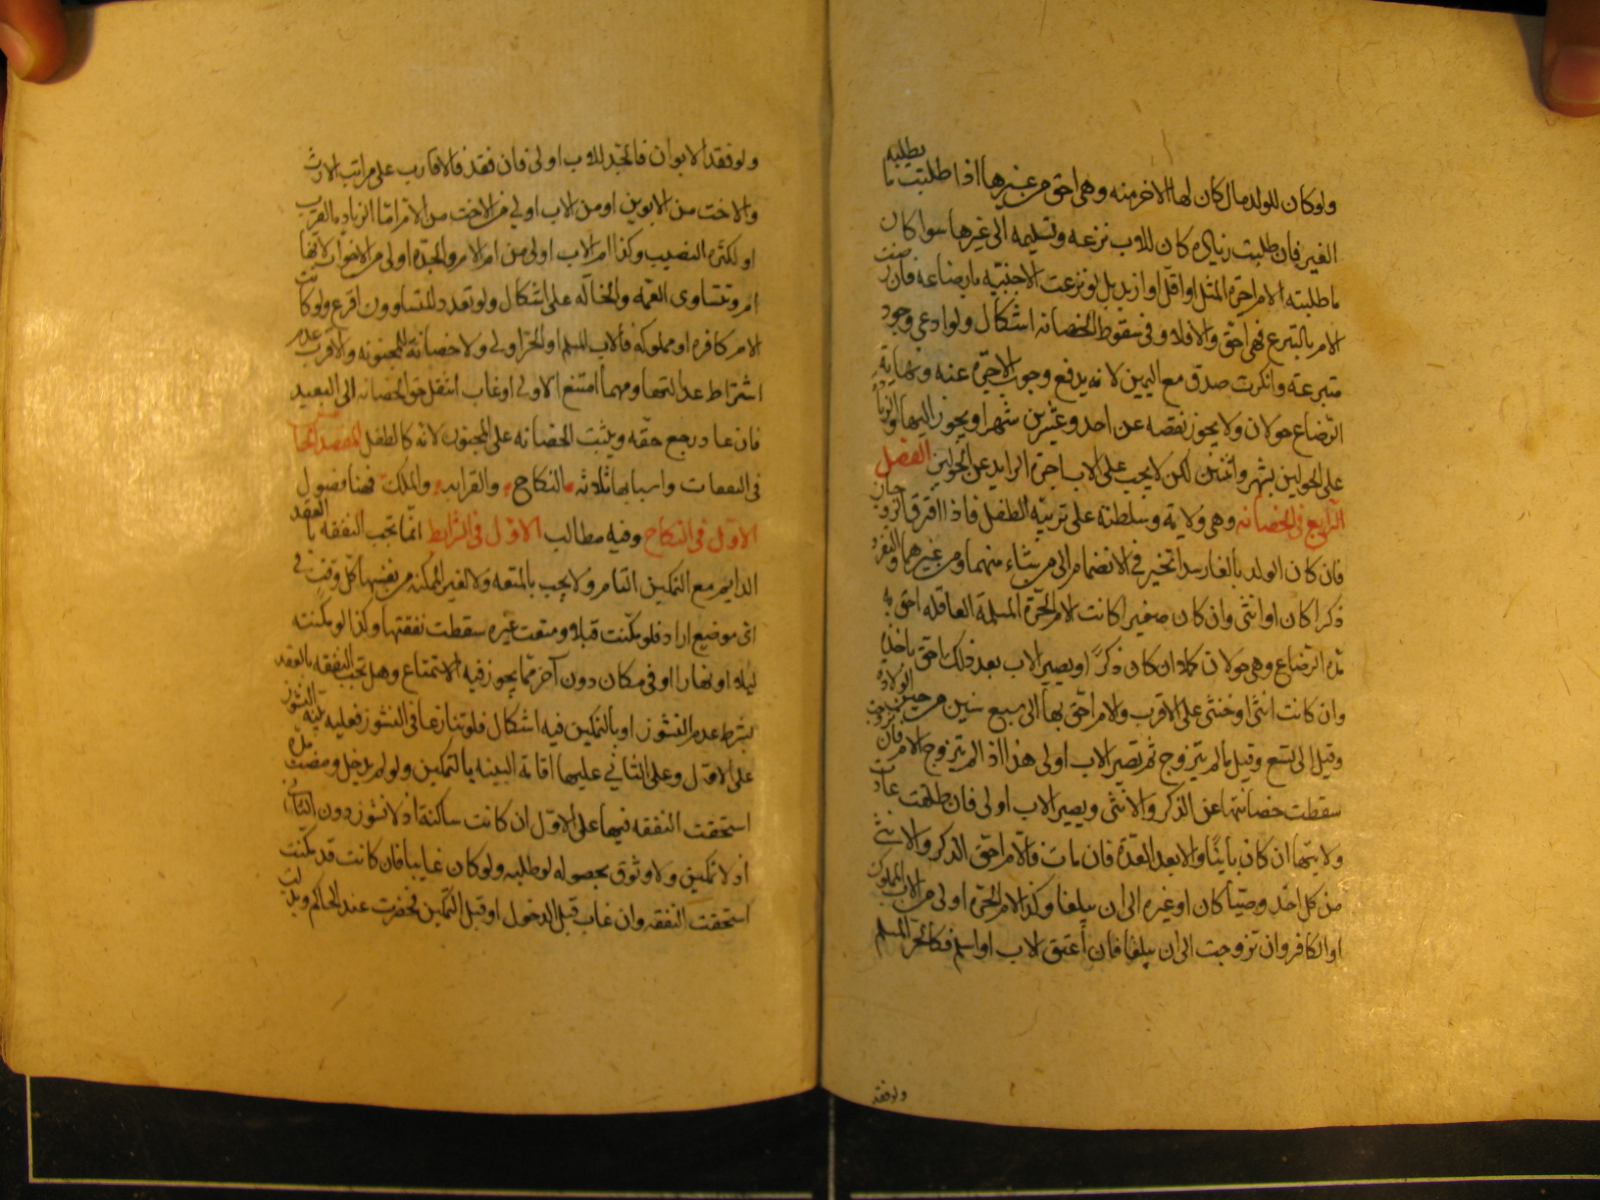 ولو كان للولد مال كان لها الاخر منه وهى احق من غيرها اذا طلبت ما يطلبه
الغير فان طلبت زيادة كان للاب نزعه وتسليمه الى غيرها سوا كان
ما طلبته الام اجرة المثل او اقل او ازيد بل لو تبرعت الاجنبيه بارضاعه فان رضيت
الام بالتبرع فهى احق والا فلا وفى سقوط الحضانه اشكال ولو ادعى وجود
متبرعه وانكرت صدق مع اليمين لانه يدفع وجوب الاجرة عنه ونهاية
الرضاع حولان ولا يجوز نقصه عن احد وعشرين شهرا ويجوز اليها والزيادة
على الحولين بشهر واثنين لكن لا يجب على الاب اجرة الزايد عن الحولين الفصل
الرابع فى الحضانه وهى ولاية وسلطنة على تربية الطفل فاذا افترق الزوجان
فان كان الولد بالغا رشيدا تخير فى الانضمام الى من شاء منهما ومن غيرهما والتفرد
ذكرا كان او انثى وان كان صغيرا كانت الام الحرة المسلمة العاقله احق به
مدة الرضاع وهى حولان كملا ان كان ذكرا ويصير الاب بعد ذلك احق باخذه
وان كانت انثى او خنثى على الاقرب والام احق بها الى سبع سنين من حين الولادة
وقيل الى تسع وقيل ما لم يتزوج ثم تصير الاب اولى هذا اذا لم يتزوج الام فان تزوجت
سقطت حضانتها عن الذكر والانثى ويصير الاب اولى فان طلقت عادت
ولايتها ان كان باينا والا بعد العدة فان مات فالام احق الذكر والانثى
من كل احد وصيا كان او غيره الى ان يبلغا وكذا الام الحرة اولى من الاب المملوك
او الكافر وان تزوجت الى ان يبلغا فان أعتق الاب او اسلم فكالحر المسلم
ولو فقد
ولو فقد الابوان فالجد للاب اولى فان فقد فالاقارب على مراتب الارث
والاخت من الابوين او من الاب اولى من الاخت من الام اما الزيادة القرب
او لكثرة النصيب وكذا ام الاب اولى من ام الام والجدة اولى من الاخوات لانها
ام وتتساوى العمه والخاله على اشكال ولو تعدد المتساوون اقرع ولو كانت
الام كافره او مملوكه فالاب المسلم او الحر اولى ولا حضانة للمجنونه والاقرب عدم
اشتراط عدالتها ومهما امتنع الاولى او غاب انتقل حق الحضانه الى البعيد
فان عاد رجع حقه ويثبت الحضانه على المجنون لانه كالطفل المقصد الخامس
فى النفقات واسبابها ثلاثه النكاح والقرابه والملك فهنا فصول
الاول فى النكاح وفيه مطالب الاول فى الشرايط انما تجب النفقه بالعقد
الدايم مع التمكين التام ولا يجب بالمتعه ولا لغير الممكنه من نفسها كل وقت فى
اى موضع اراد فلو مكنت قبلا ومنعت غيره سقطت نفقتها وكذا لو مكنته
ليلا او نهارا او فى مكان دون آخر مما يجوز فيه الاستمتاع وهل تجب النفقه بالعقد
بشرط عدم النشوز او بالتمكين فيه اشكال فلو تنازعا فى النشوز فعليه بينة النشوز
على الاول وعلى الثانى عليها اقامة البينه بالتمكين ولو لم يدخل ومضت مدة
استحقت النفقه فيها على الاول ان كانت ساكنة اذ لا نشوز دون الثانى
اذ لا تمكين ولا وثوق بحصوله لو طلبه ولو كان غايبا فان كانت قد مكنت
استحقت النفقه وان غاب قبل الدخول او قبل التمكين فحضرت عند الحاكم وبذلت